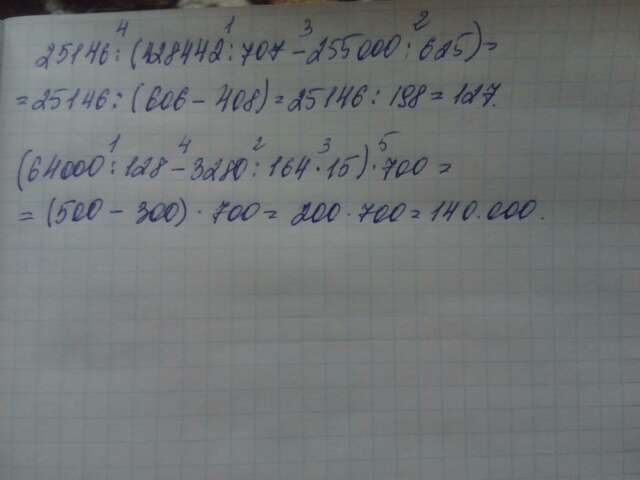 4 1 3 2
25146 : (428442 : 707 - 255000 : 625) =
= 25146 : (606 - 408) = 25146 : 198 = 127.
1 4 2 3 5
(64000 : 128 - 3280 : 164 · 15) · 700 =
= (500 - 300) · 700 = 200 · 700 = 140.000.